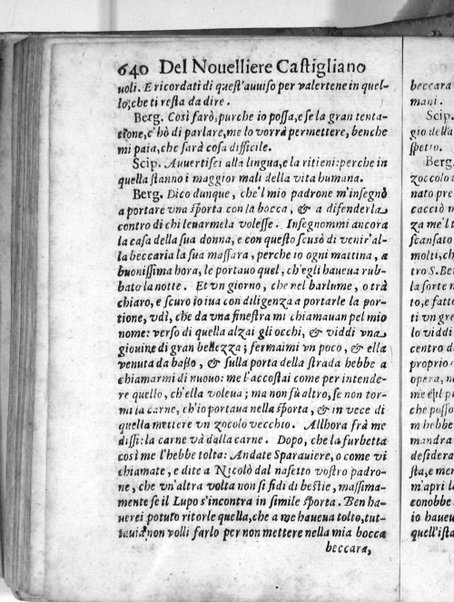 640 Del Nouelliere Castigliano
uoli. E ricordati di quest'auuiso per valertene in quel-
lo, che ti resta da dire.
Berg. Così farò, purche io possa, e se la gran tenta-
tione, c'hò di parlare, me lo vorrà permettere, benche
mi paia, che sarà cosa difficile.
Scip. Auuertisci alla lingua, e la ritieni: perche in
quella stanno i maggior mali della vita humana.
Berg. Dico dunque, che'l mio padrone m'insegnò
a portare vna sporta con la bocca, & a difenderla
contro di chi leuarmela volesse. Insegnommi ancora
la casa della sua donna, e con questo scusò di venir'al-
la beccaria la sua massara, perche io ogni mattina, a
buonissima hora, le portauo quel, ch'egli haueua rub-
bato la notte. Et vn giorno, che nel barlume, o trà
chiaro, e scuro io iua con diligenza a portarle la por-
tione, vdì, che da vna finestra mi chiamauan pel mio
nome: verso di quella alzai gli occhi, & viddi vna
giouine di gran bellezza; fermaimi vn poco, & ella
venuta da basso, & sulla porta della strada hebbe a
chiamarmi di nuouo: me l'accostai come per intende-
re quello, ch'ella voleua; ma non fù altro, se non tor-
mi la carne, ch'io portaua nella sporta, & in vece di
quella mettere vn zocolo vecchio. Allhora frà me
dissi: la carne và dalla carne. Dopo, che la furbetta
così me l'hebbe tolta: Andate Sparauiere, o come vi
chiamate, e dite a Nicolò dal nasetto vostro padro-
ne, che vn'altra volta non si fidi di bestie, massima-
mente se il Lupo s'incontra in simile sporta. Ben ha-
uerei potuto ritorle quella, che a me haueua tolto, tut-
tauia non volli farlo per non mettere nella mia bocca
beccara,
beccara
mani.
Scip.
gio della
spetto.
Berg.
zoccolo
nato pre
cacciò
za me'l t
scansato
molti, ch
tro S. Ber
la sorte
to, e fatto
ti vn gre
lo viddi
centro d
proprio
opera,
me è il pr
che posso
m hebbe
mandra
desidera
sta, e men
m'apri l
conobbe
io haueu
quell'ista